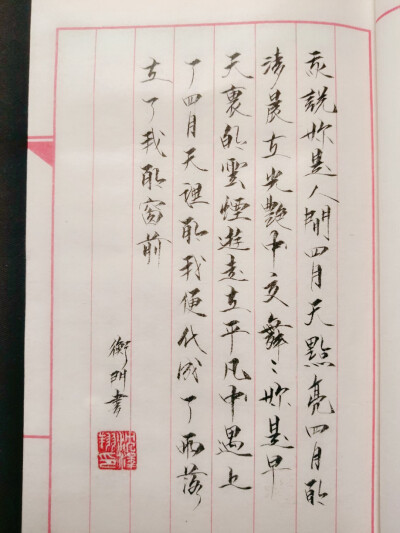 我說妳是人間四月天點亮四月的
清晨在光艷中交舞〻妳是早
天裏的雲煙遊走在平凡中遇上
了四月天裡的我便化成了雨落
在了我的窗前
衡明書